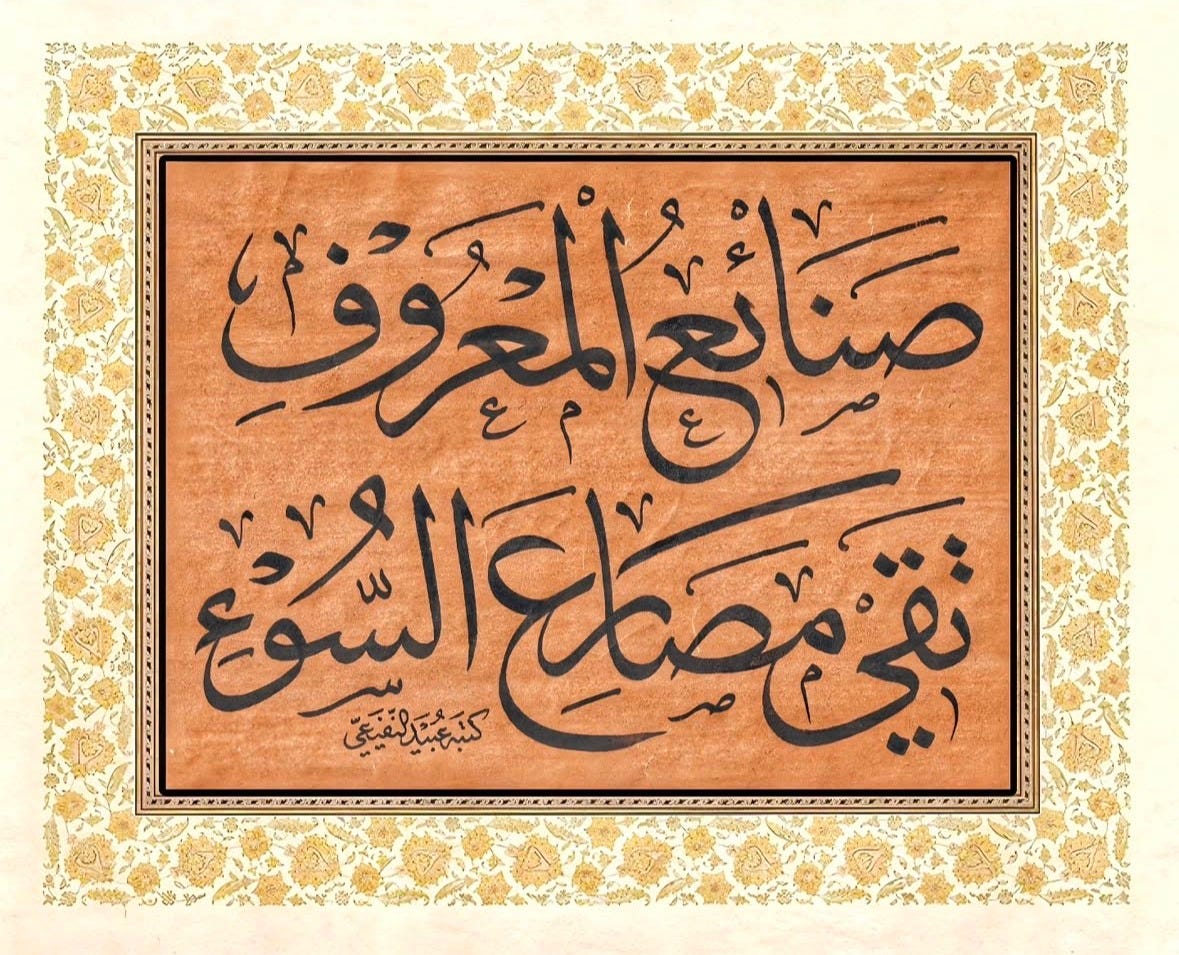 صَنَائِعُ الْمَعْرُوفِ
تَقِي مَصَارِعَ السُّوءِ
كتبه عبيد النفيعي